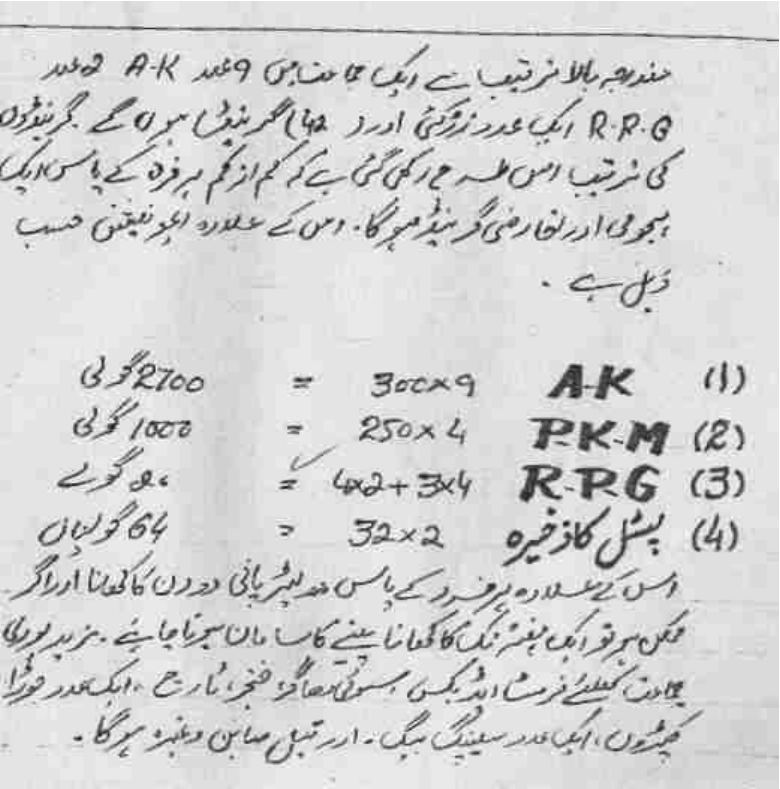 مندرجہ بالا ترتیب سے ایک جماعت میں 9 عدد A-K 2 عدد
R-R-G ایک عدد اور 42 گرینیڈ ہوں گے گرینیڈوں
کی ترتیب اس طرح رکھی گئی ہے کہ کم از کم ہر فرد کے پاس ایک
ہجومی اور دفاعی گرینیڈ ہو گا۔ اس کے علاوہ ایمونیشن حسب
ذیل ہے۔
(1) A-K 300x9 = 2700 گولی
(2) P-K-M 250x4 = 1000 گولی
(3) R-P-G 4x2+3x4 = گولے
(4) پسٹل کا ذخیرہ 32x2 = 64 گولیاں
اس کے علاوہ ہر فرد کے پاس لیٹر پانی دو دن کا کھانا اور اگر
ممکن ہو تو ایک ہفتہ تک کا کھانا پینے کا سامان ہونا چاہئے۔ مزید پوری
جماعت کیلئے فرسٹ ایڈ بکس، سوئی دھاگہ، خنجر، ٹارچ، ایک عدد جوڑا
کپڑوں، ایک عدد سلیپنگ بیگ۔ اور تیل صابن وغیرہ ہو گا۔